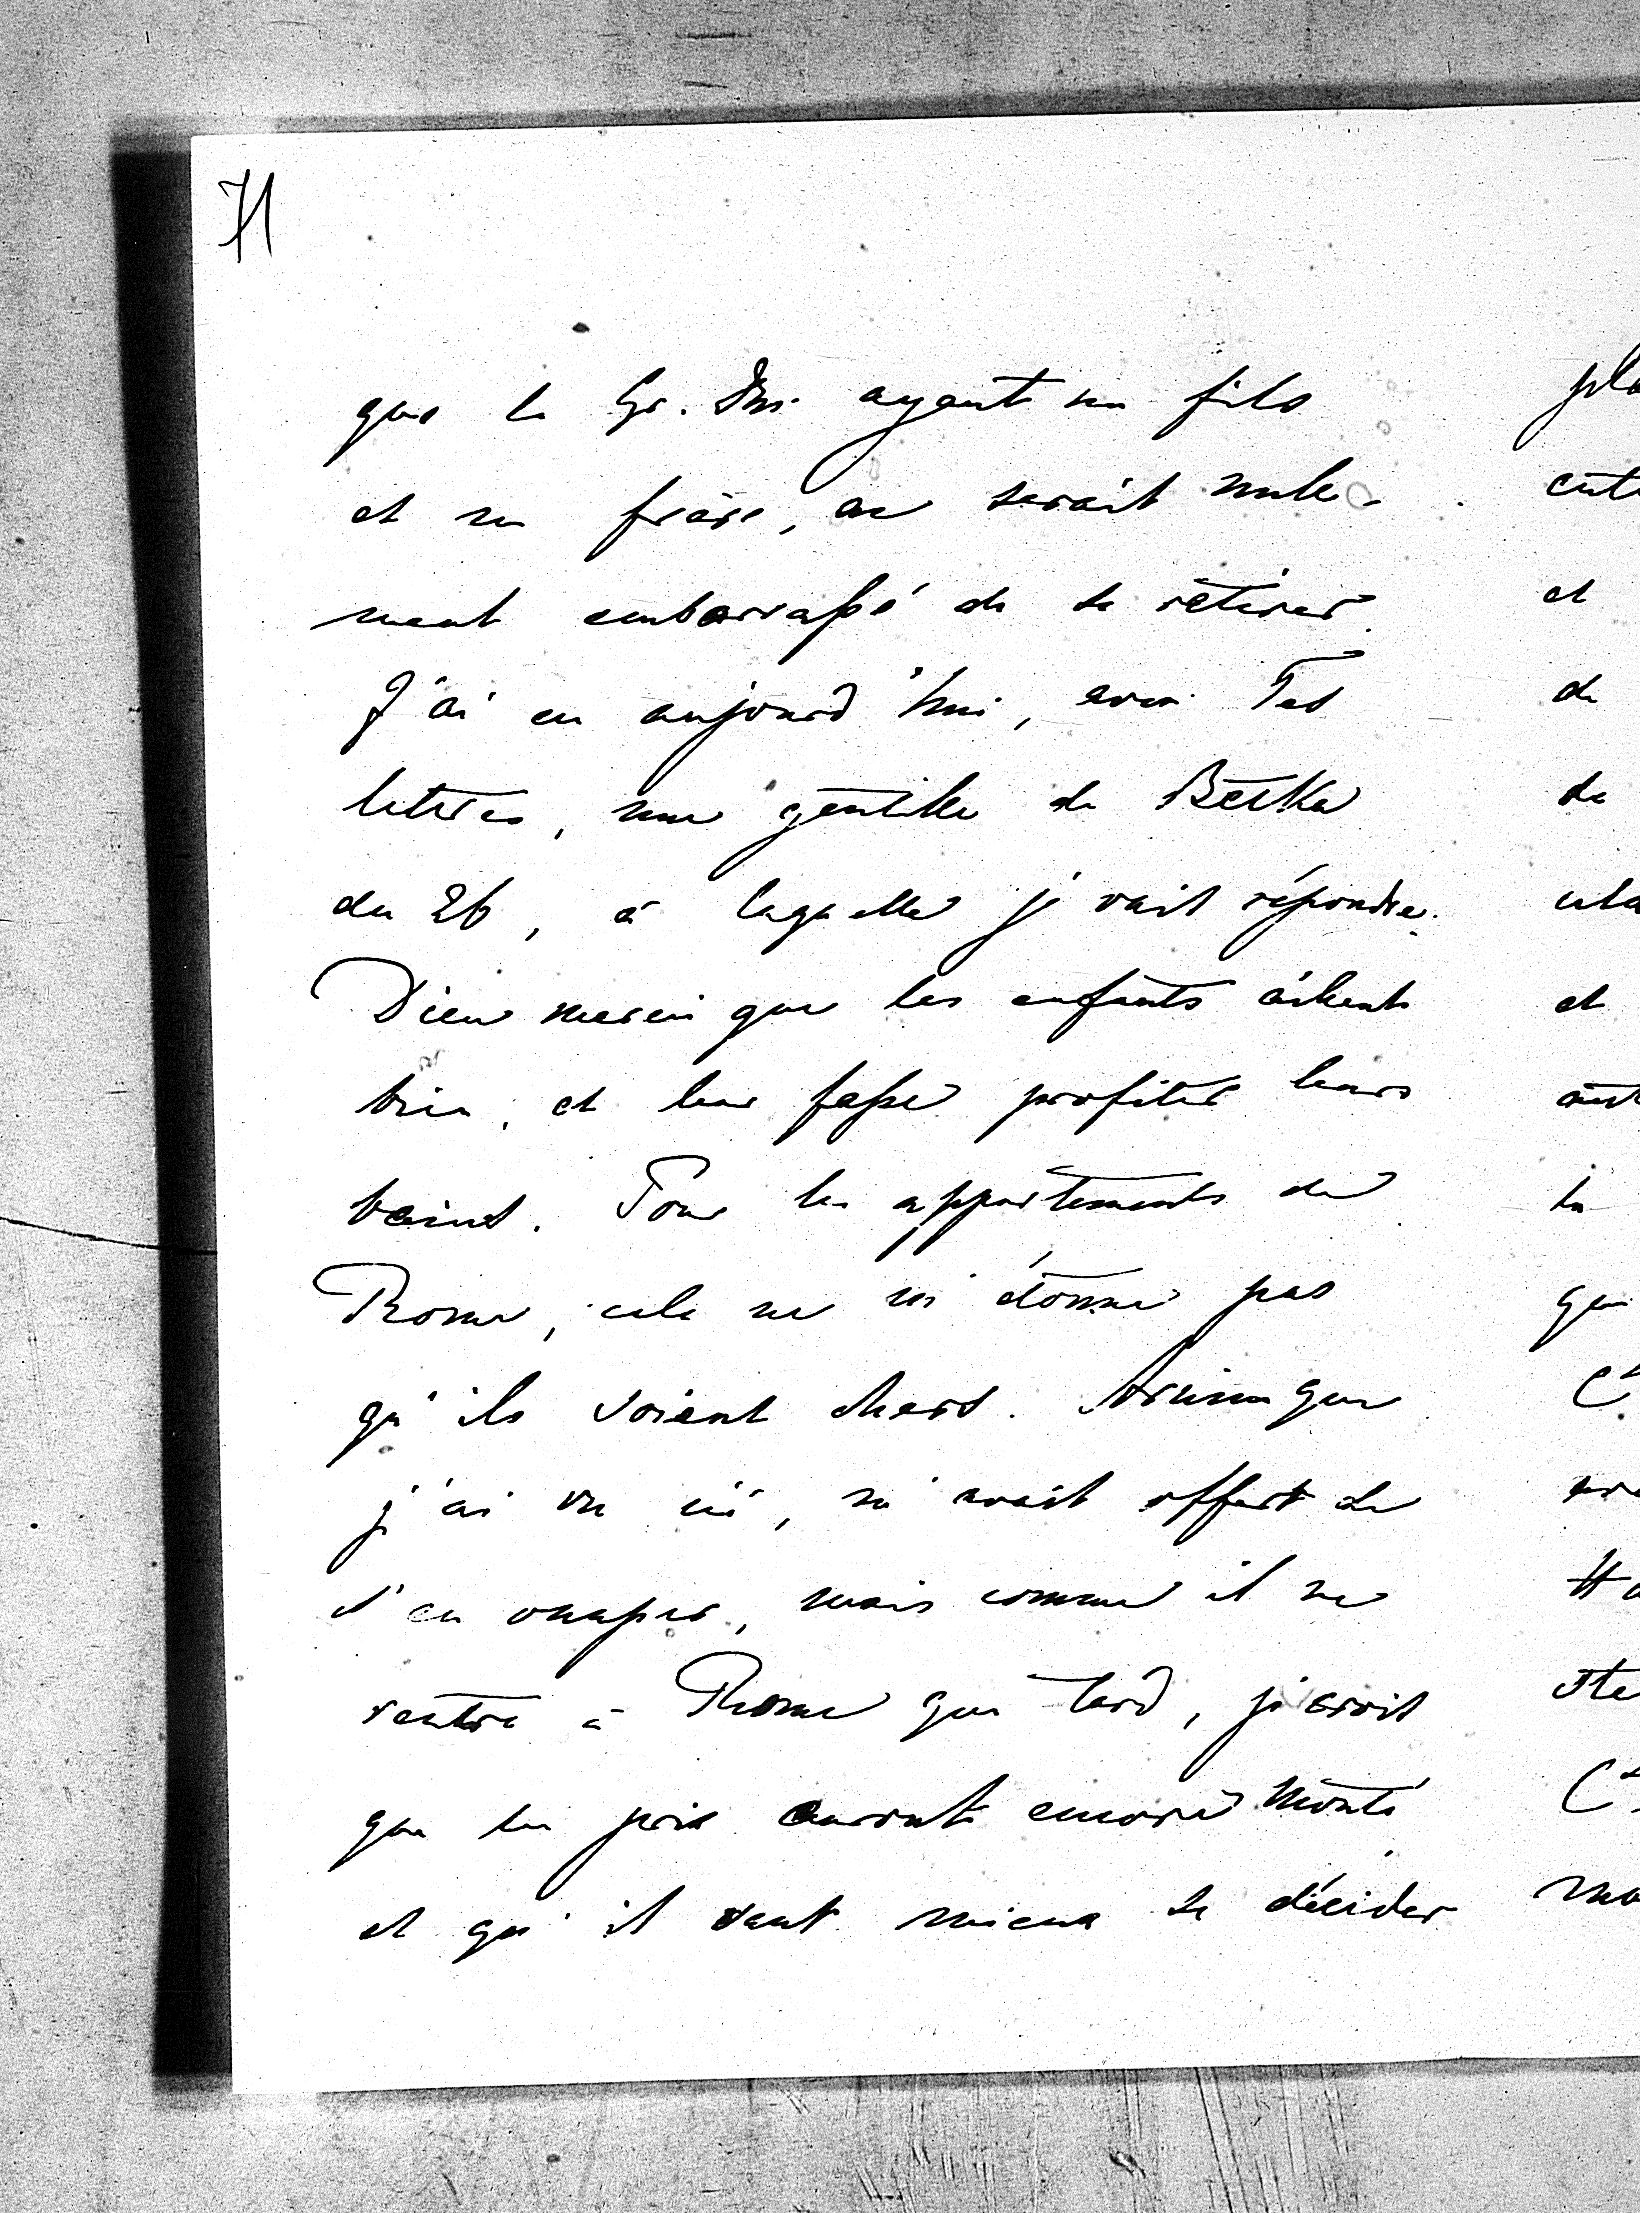 71
que le Gr. Dm. ayant un fils
et un frère, ne serait nulle-
ment embarrassé de se retirer.
J'ai eu aujourd'hui, avec Tes
lettres, une gentille de Betka
du 26, à laquelle je vais répondre.
Dieu merci que les enfants aillent
bien, et leur fasse profiter leurs
bains. Pour les appartements de
Rome, cela ne m'étonne pas
qu'ils soient chers. que
j'ai vu ici, m'avait offert de
s'en occuper, mais comme il ne
rentre à Rome que tard, je crois
que les prix auront encore monté
et qu'il vaut mieux se décider
et
de
de
et
la
qui